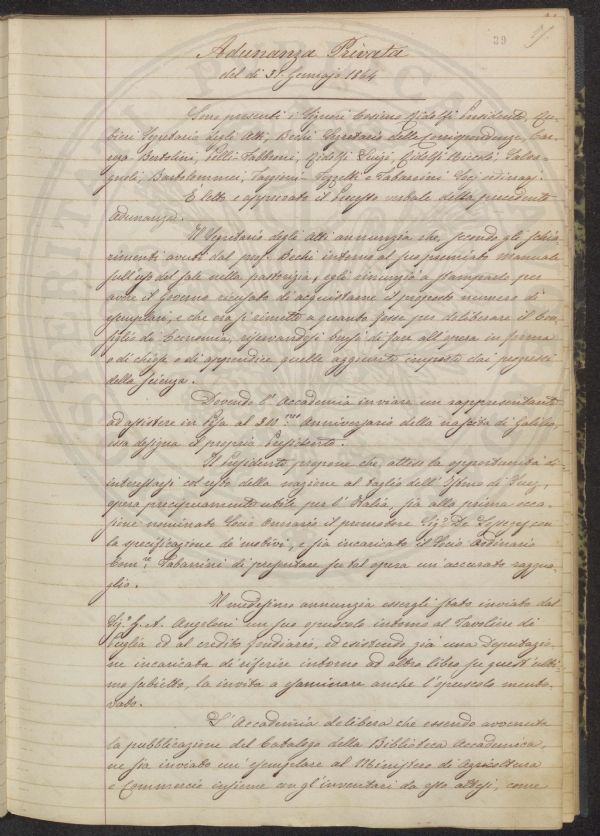 39
Adunanza Privata
del dì 31 Gennajo 1864
Sono presenti i Signori Cosimo Ridolfi Presidente, Ru-
bieri Segretario degli Atti, Bechi Segretario delle Corrispondenze, Car-
rega Bertolini, Pelli-Fabbroni, Ridolfi Luigi, Ridolfi Niccolò, Salva-
gnoli, Bartolommei, Targioni-Tozzetti e Tabarrini Socj ordinarj.
È letto e approvato il Processo verbale della precedente
Adunanza.
Il Segretario degli Atti annunzia che, secondo gli schia
rimenti avuti dal prof. Bechi intorno al suo premiato manuale
sull'uso del sale nella pastorizia, egli rinunziò a stamparlo per
avere il Governo ricusato di acquistarne il proposto numero di
esemplari, e che ora si rimette a quanto fosse per deliberare il Con-
siglio di Economia, riservandosi bensì di fare all'opera in forma
o di chiose o di appendice quelle aggiunte imposte dai progressi
della scienza.
Dovendo l'Accademia inviare un rappresentante
ad assistere in Pisa al 300.mo Anniversario della nascita di Galileo,
essa designa il proprio Presidente.
Il Presidente propone che, attesa la opportunità d'in-
teressarsi col voto della nazione al taglio dell'Istmo di Suez,
opera precipuamente utile per l'Italia, sia alla prima occa-
sione nominato Socio Onorario il promotore Sig.r De Lesseps con
la specificazione de' motivi, e sia incaricato il Socio Ordinario
Comm.re Tabarrini di presentare su tal opera un'accurato raggua-
glio.
Il medesimo annunzia essergli stato inviato dal
Sig.r G. A. Angeloni un suo opuscolo intorno al Tavoliere di
Puglia ed al credito fondiario, ed esistendo già una Deputazio-
ne incaricata di riferire intorno ad altro libro su quest'ulti-
mo subietto, la invita a esaminare anche l'opuscolo mento-
vato.
L'Accademia delibera che essendo avvenuta
la pubblicazione del Catalogo della Biblioteca Accademica,
ne sia inviato un'esemplare al Ministero di Agricoltura
e Commercio insieme con gl'inventari da esso chiesti, come